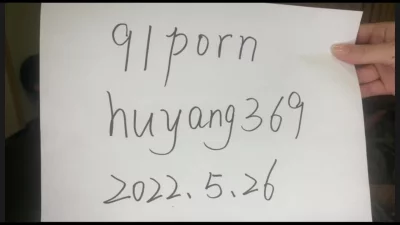 91porn
huyang369
2022.5.26